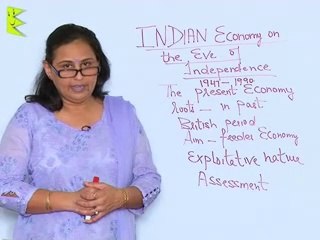 INDIAN Economy on
the Eve of
Independence
1947-1990
The present Economy
roots - in past
British period
Aim - feeder Economy
Exploitative nature
Assessment